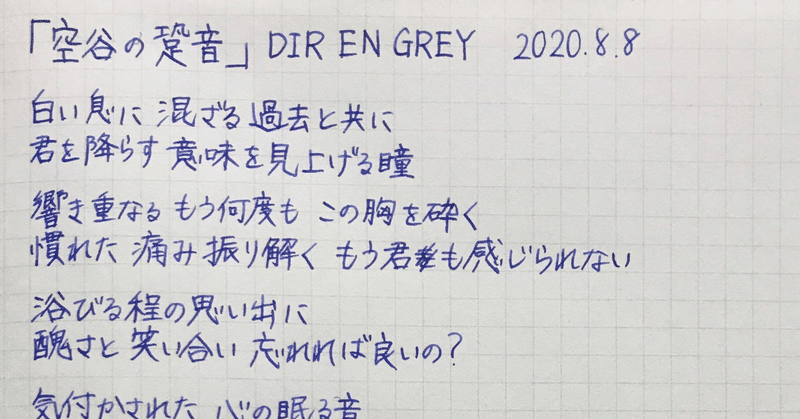 「空谷の跫音」DIR EN GREY 2020.8.8
白い息に 混ざる 過去と共に
君を降らす 意味を見上げる瞳
響き重なる もう何度も この胸を砕く
慣れた 痛み 振り解く もう君も感じられない
浴びる程の思い出に
醜さと 笑い合い 忘れれば良いの？
気付かされた 心の眠る音